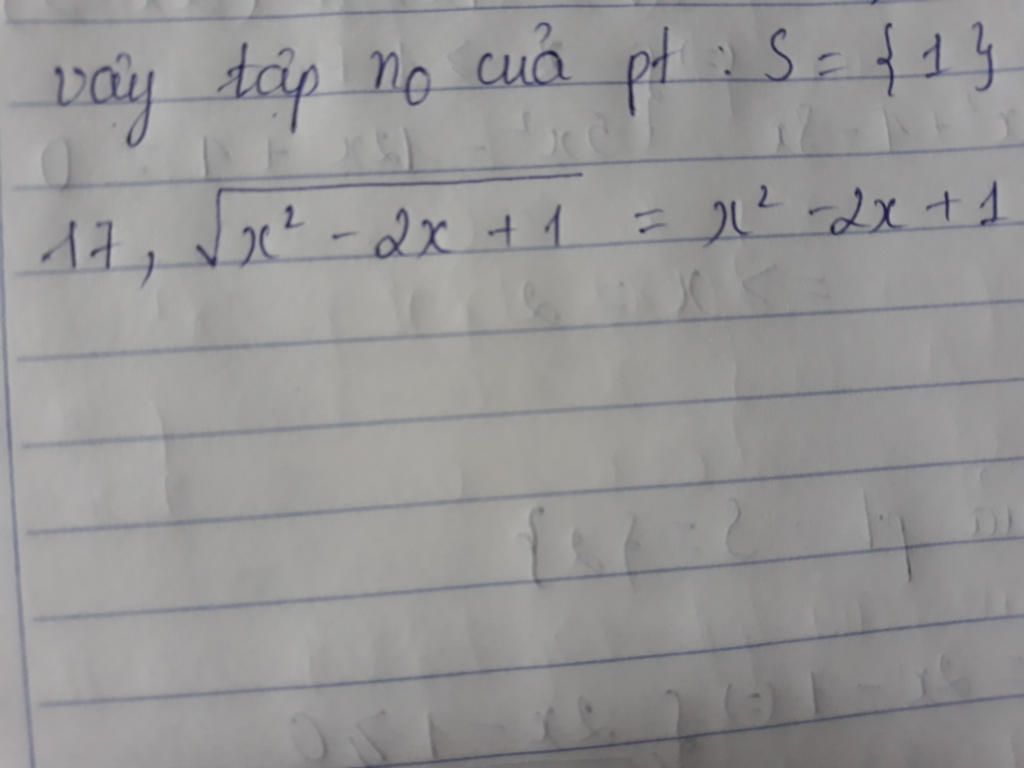 vậy tập n₀ của pt : S = { 1 }
17, √(x² - 2x + 1) = x² - 2x + 1